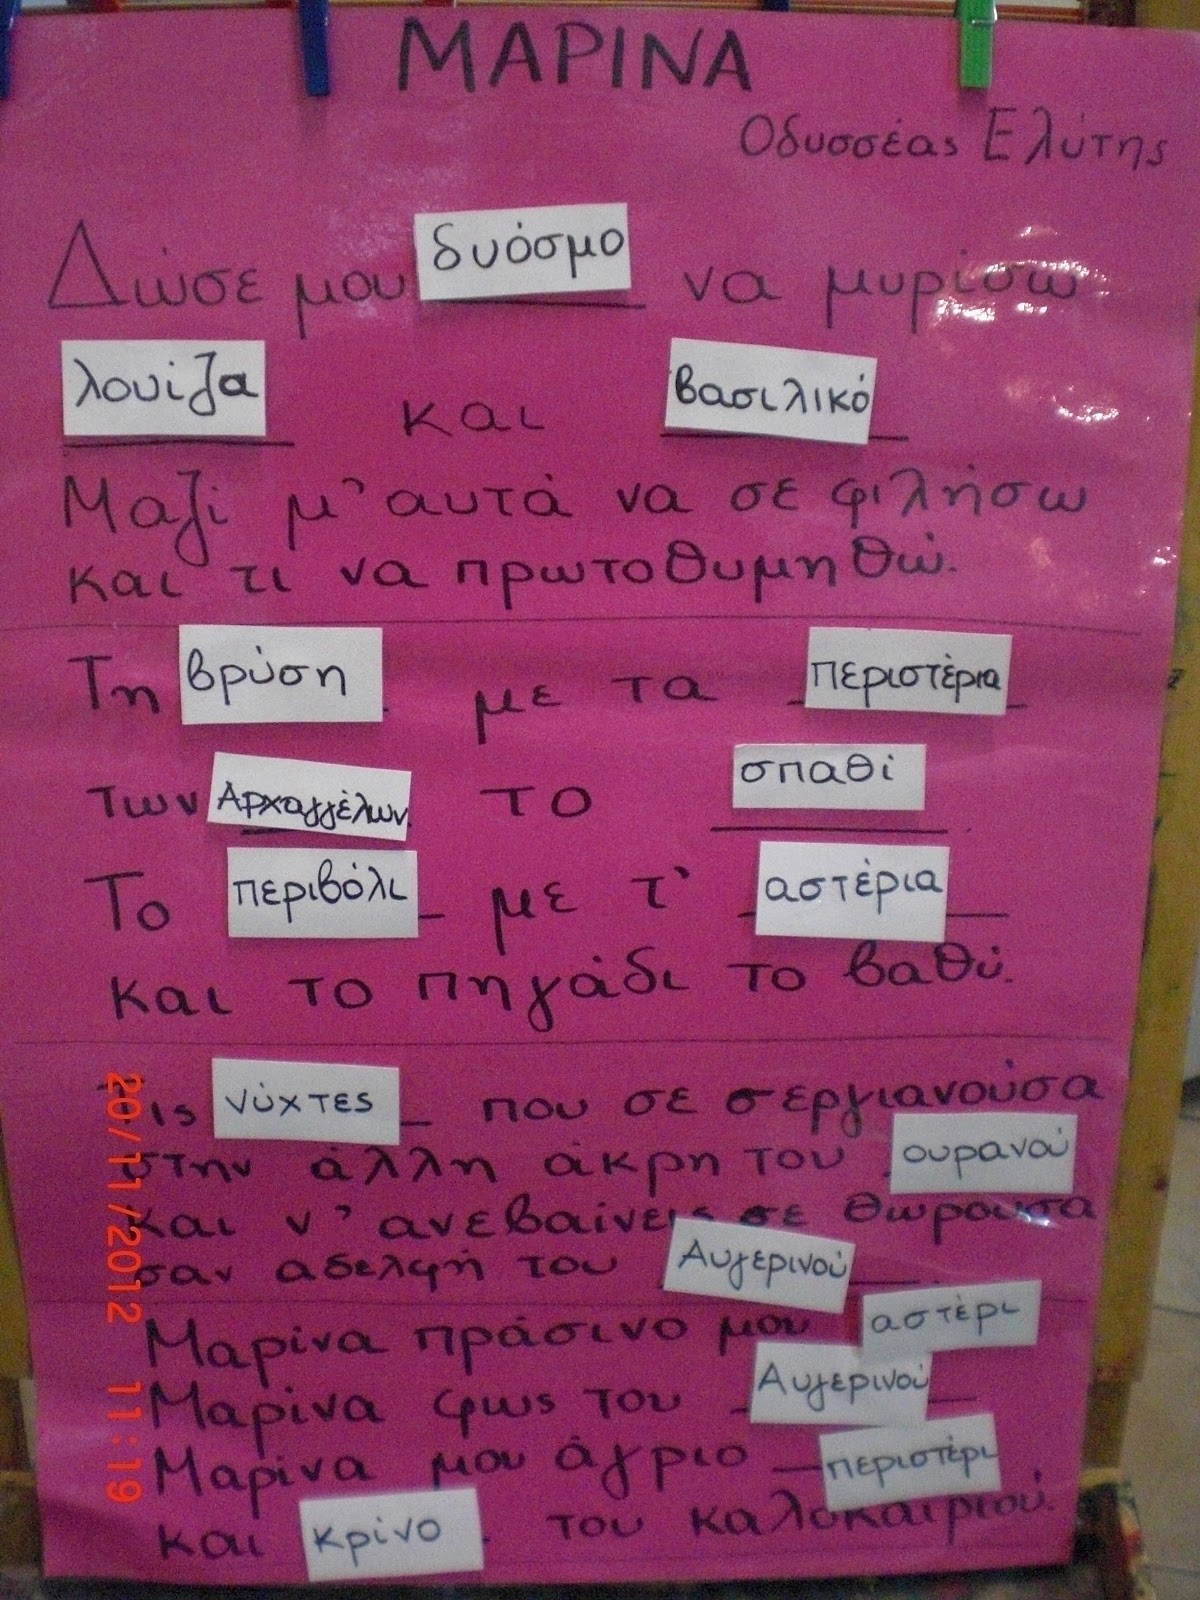 ΜΑΡΙΝΑ
Οδυσσέας Ελύτης
Δώσε μου δυόσμο να μυρίσω
λουίζα και βασιλικό
Μαζί μ' αυτά να σε φιλήσω
και τι να πρωτοθυμηθώ.
Τη βρύση με τα περιστέρια
των Αρχαγγέλων το σπαθί
Το περιβόλι με τ' αστέρια
και το πηγάδι το βαθύ.
Τις νύχτες που σε σεργιανούσα
στην άλλη άκρη του ουρανού
και ν' ανεβαίνεις σε θωρούσα
σαν αδελφή του Αυγερινού
Μαρίνα πράσινο μου αστέρι
Μαρίνα φως του Αυγερινού
Μαρίνα μου άγριο περιστέρι
και κρίνο του καλοκαιριού.
20/11/2012 11:19